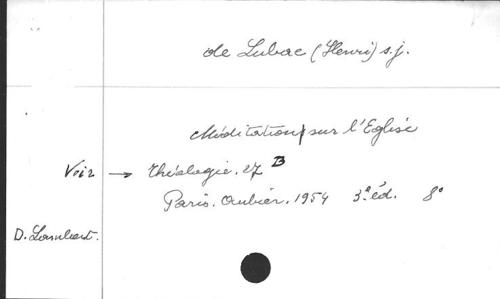 de Lubac (Henri) s.j.
Méditation sur l'Eglise
Voir → théologie. 27 B
Paris. Aubier. 1954 3e éd. 8°
D. Lambert.